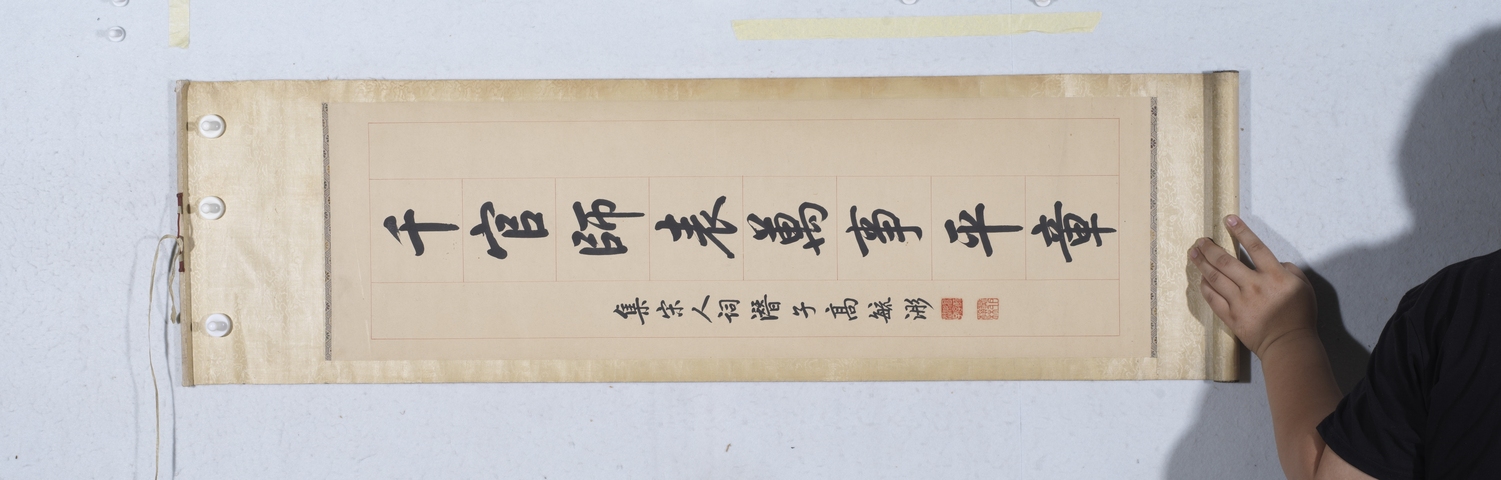 千官師表萬事平章
集宋人詞潛子高毓浵